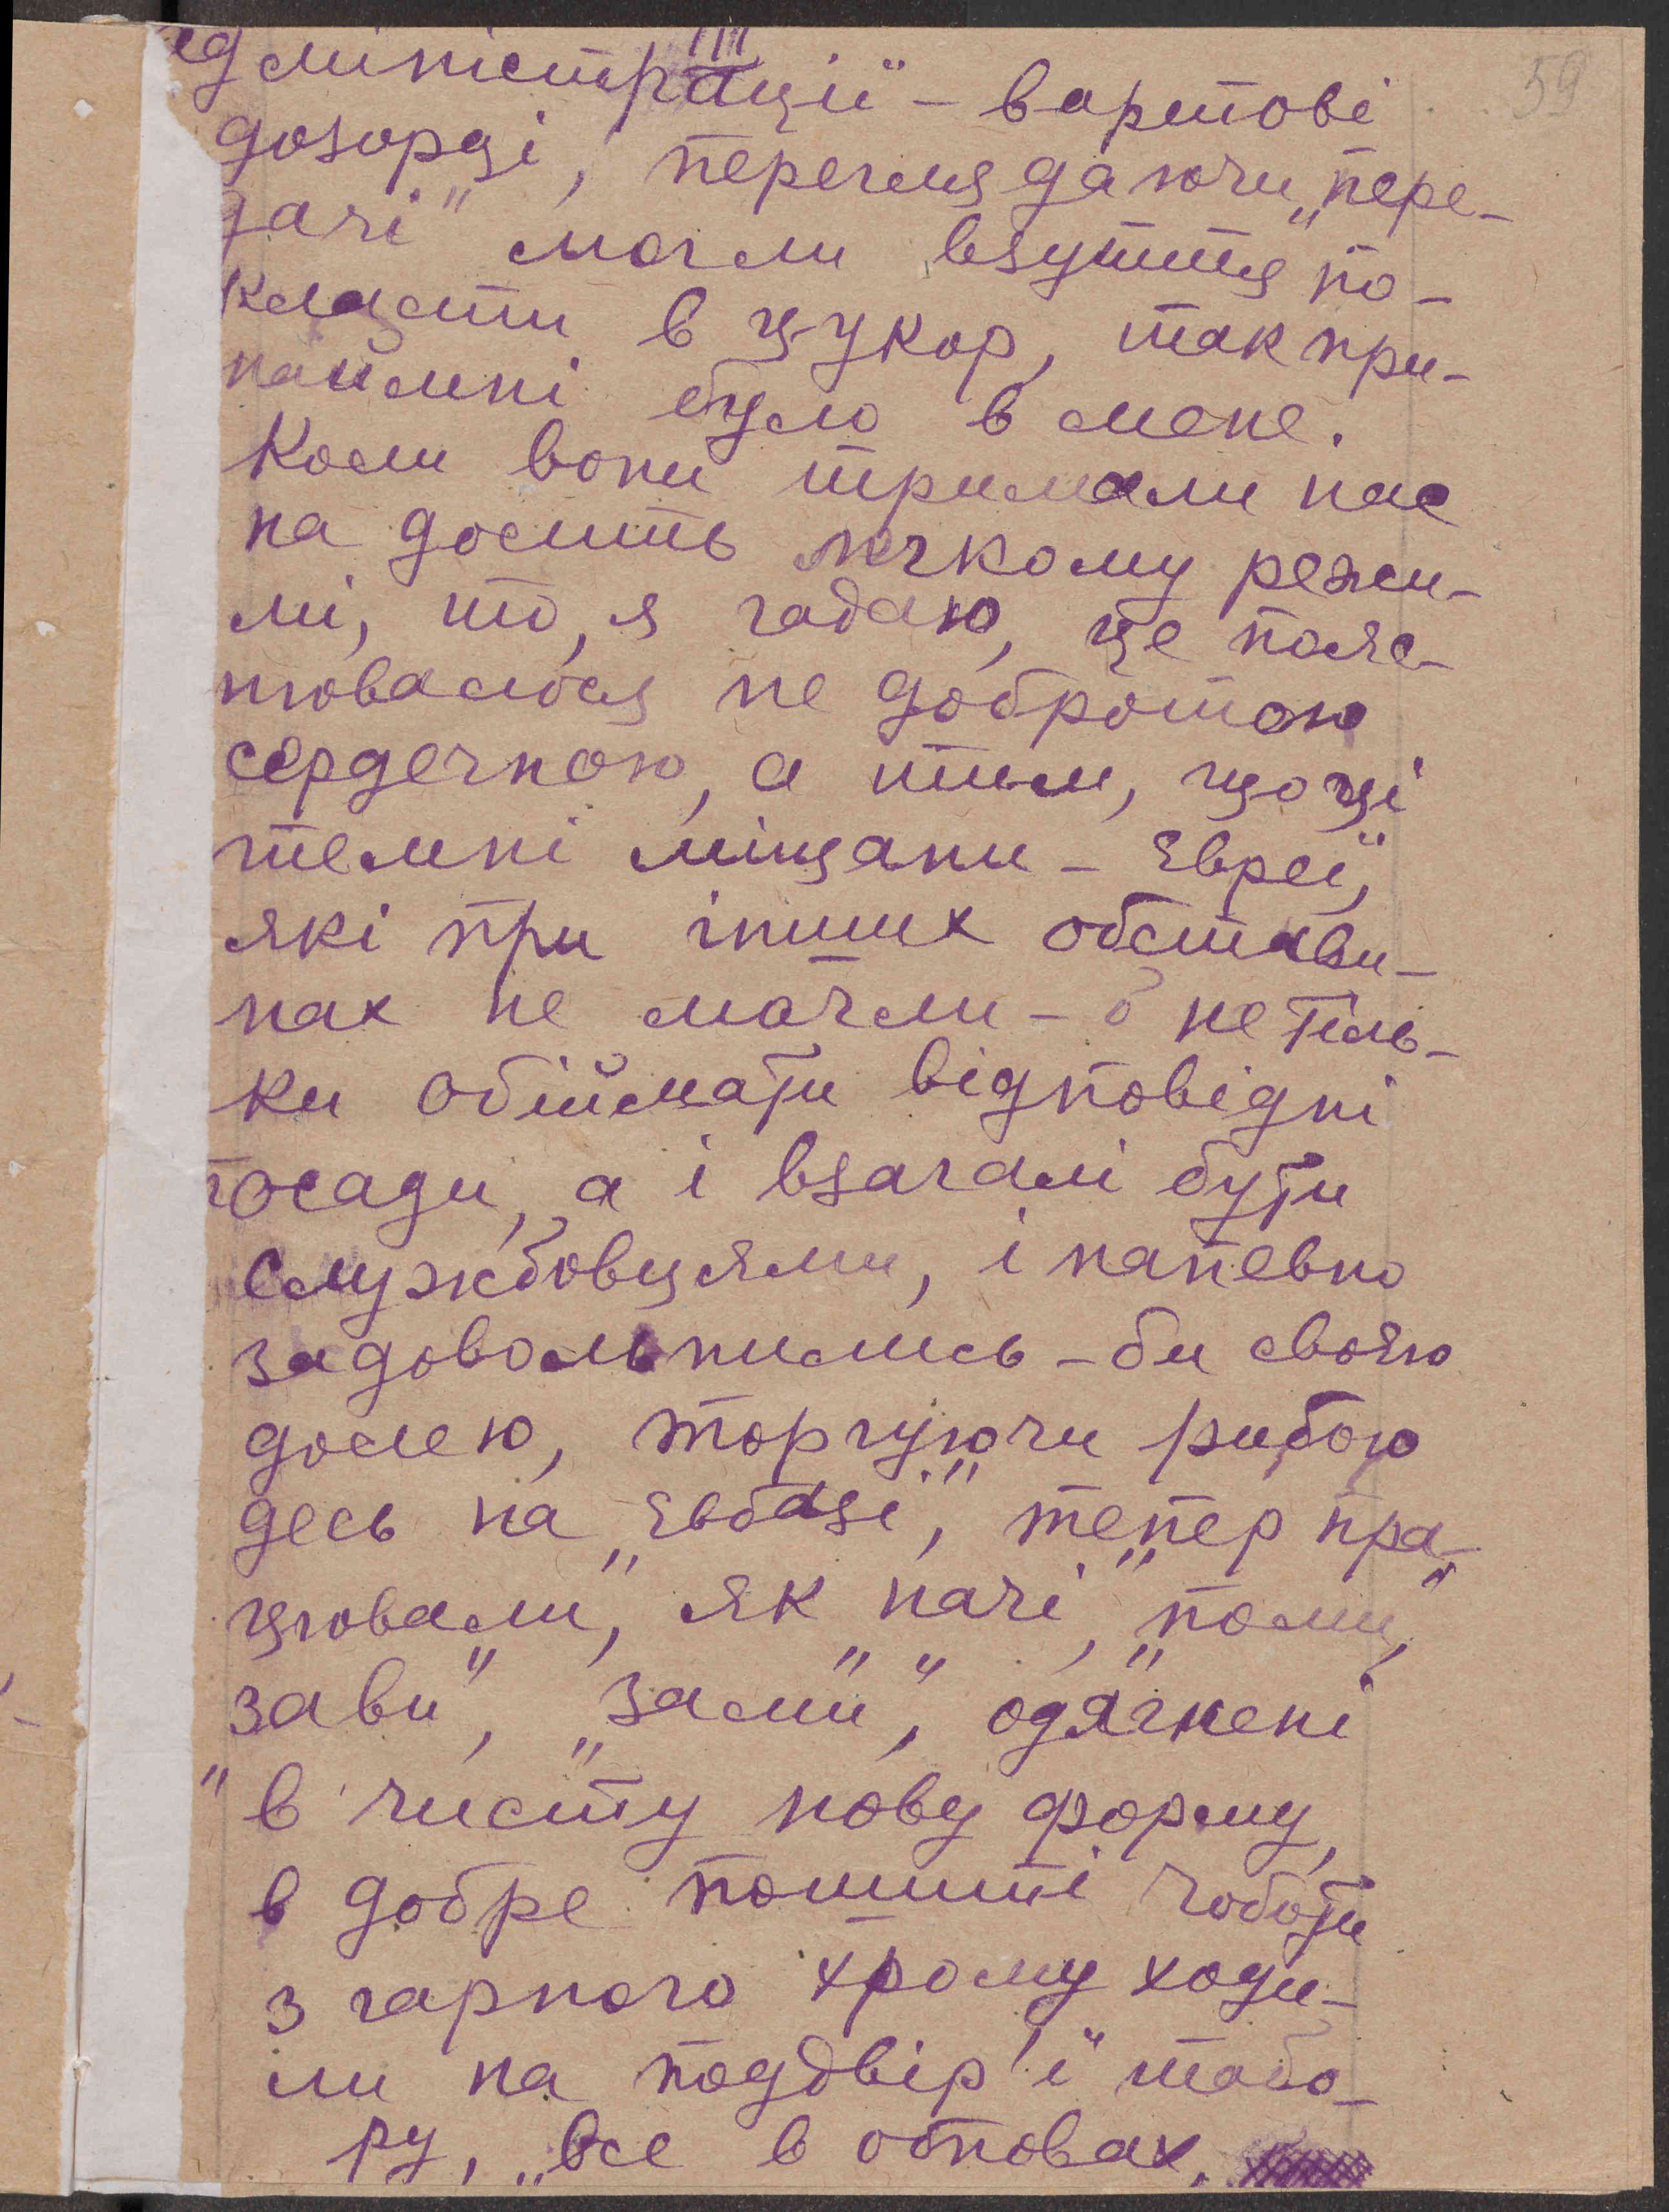 59
едміністрації" – вартові
дозорці, переглядаючи „пере-
дачі" могли взуття по-
класти в цукор, так при-
наймні було в мене.
Коли вони тримали нас
на досить легкому режи-
мі, то, я гадаю, це пояс-
нювалося не добротою
сердечною, а тим, що ці
темні міщани – євреї,
які при інших обстави-
нах не могли – б не тіль-
ки обіймати відповідні
посади, а і взагалі бути
службовцями, і напевно
задовольнились – би своєю
долею, торгуючи рибою
десь на „Євбазі", тепер пра-
цювали, як „начі", „поми",
„зави", „зами", одягнені
в чисту нову форму,
в добре пошиті чоботи
з гарного хрому ходи-
ли на подвір'ї табо-
ру, „все в обновах.